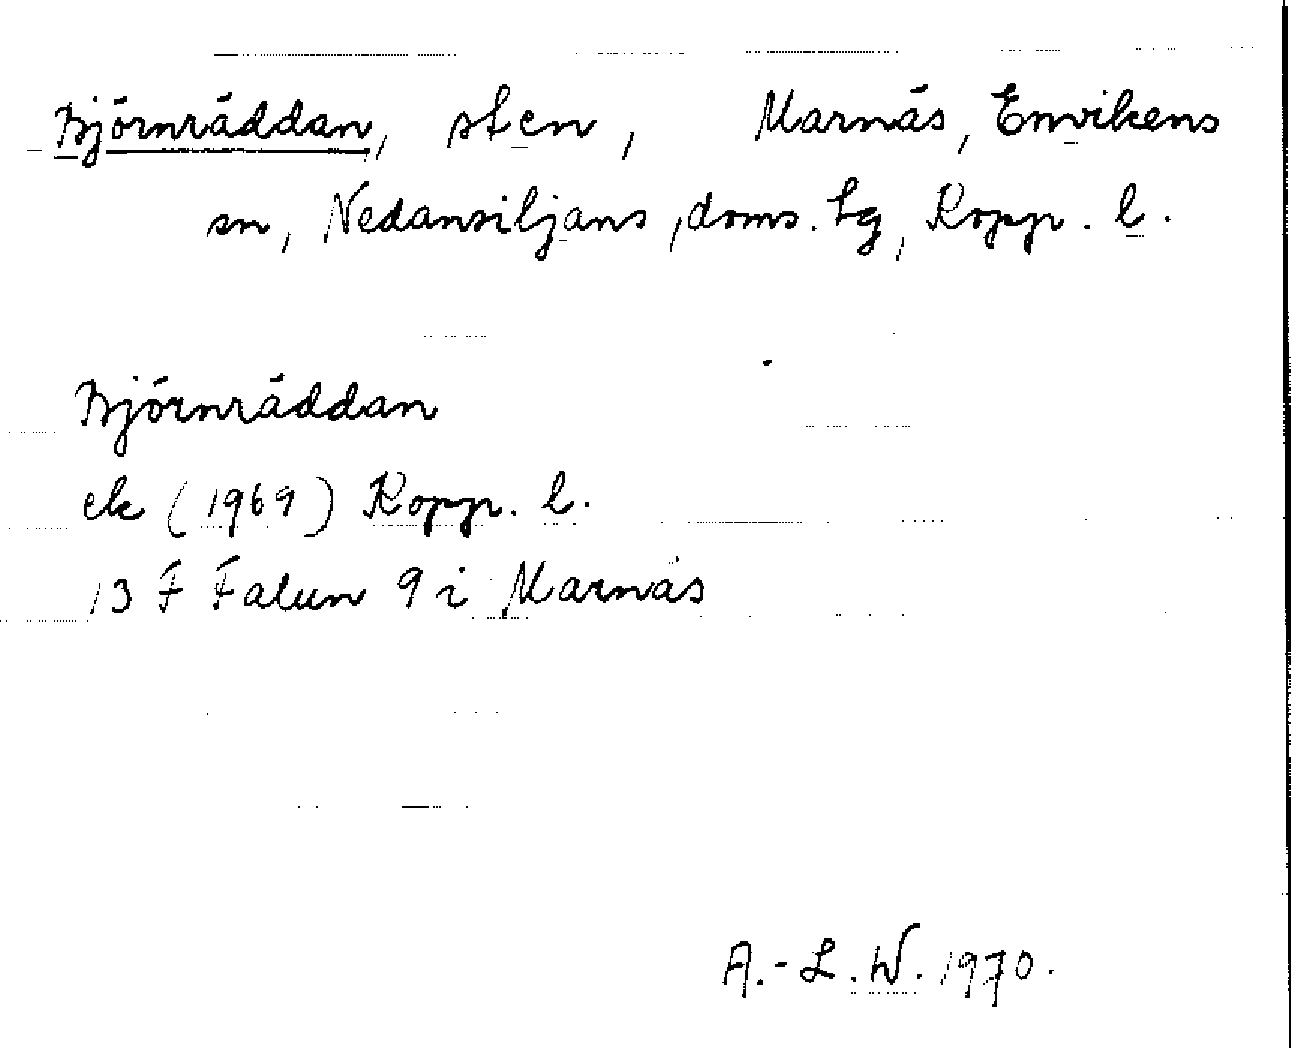 Björnräddan, sten, Marnäs, Envikens
sn, Nedansiljans doms. tg, Kopp. l.
Björnräddan
ek (1969) Kopp. l.
13 F Falun 9 i Marnäs
A.-L. W. 1970.